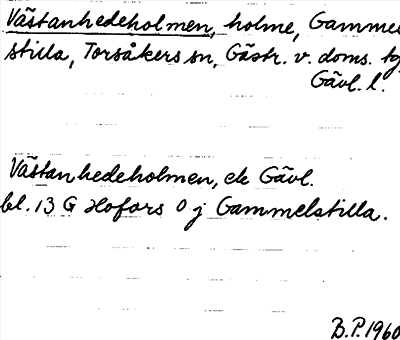 Västanhedeholmen, holme, Gammel
stilla, Torsåkers sn, Gästr. v. doms. tg
Gävl. l.
Västanhedeholmen, ek Gävl.
bl. 13 G Hofors 0 j Gammelstilla.
B.P. 1960